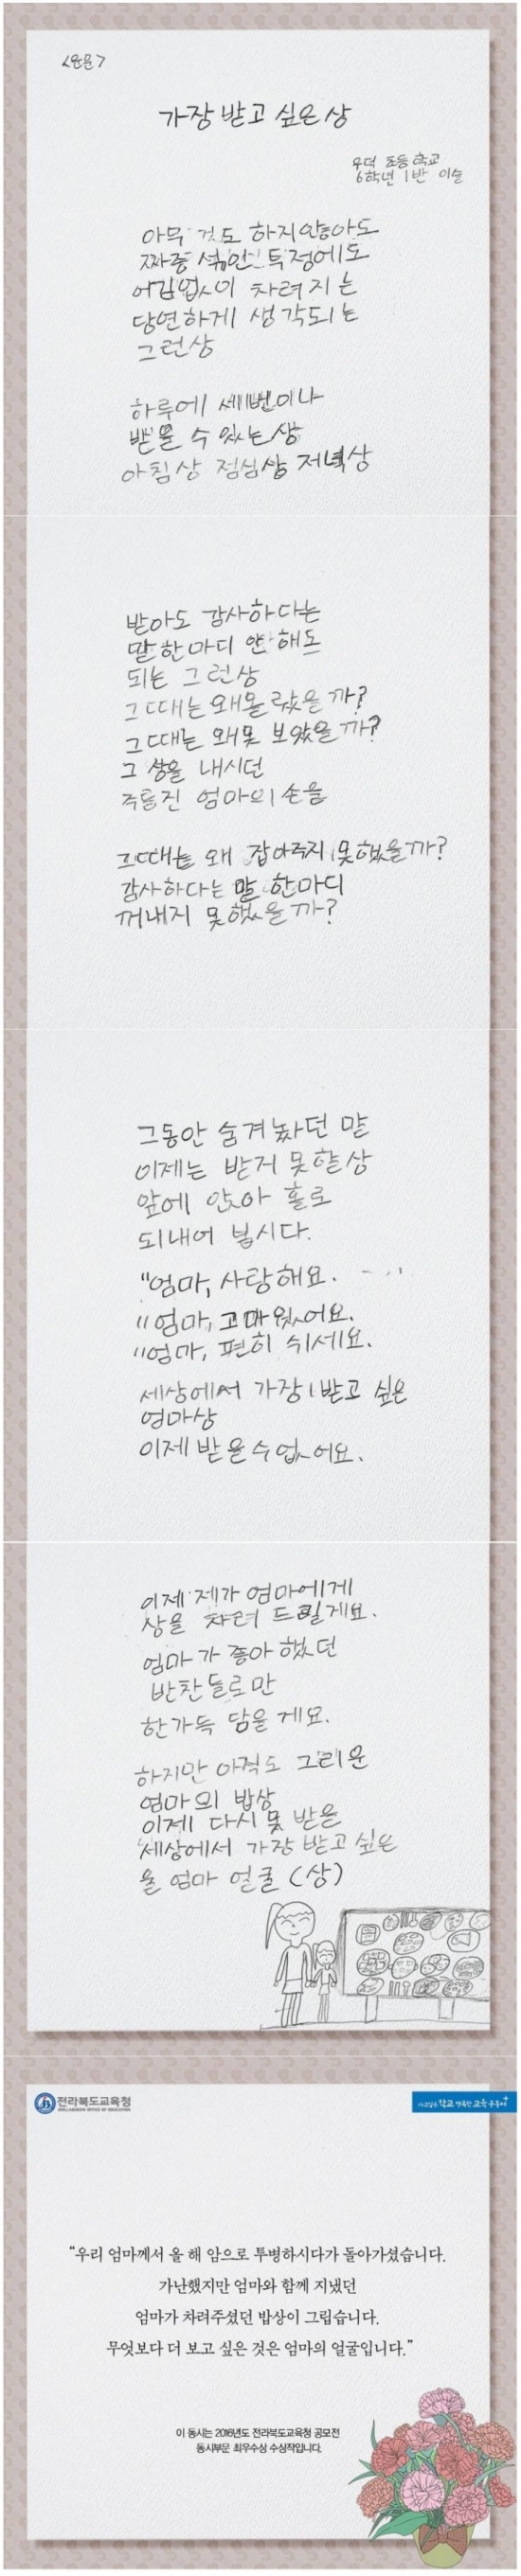 <운문>
가장 받고 싶은 상
우덕 초등학교
6학년 1반 이슬
아무 것도 하지않아도
짜증 섞인 투정에도
어김없이 차려지는
당연하게 생각되는
그런상
하루에 세번이나
받을 수 있는 상
아침상 점심상 저녁상
받아도 감사하다는
말한마디 안해도
되는 그런상
그때는 왜몰랐을까?
그때는 왜못 보았을까?
그 상을 내시던
주름진 엄마의 손을
그때는 왜 잡아주지 못했을까?
감사하다는 말 한마디
꺼내지 못했을까?
그동안 숨겨놨던 말
이제는 받지 못할상
앞에 앉아 홀로
되내어 봅시다.
"엄마, 사랑해요.
"엄마, 고마웠어요.
"엄마, 편히 쉬세요.
세상에서 가장 받고 싶은
엄마상
이제받을수없어요.
이제 제가 엄마에게
상을 차려 드릴게요.
엄마가 좋아했던
반찬들로만
한가득 담을게요.
하지만 아직도 그리운
엄마의 밥상
이제 다시 못 받을
세상에서 가장 받고 싶은
울 엄마 얼굴 (상)
전라북도교육청
JEOLLABUKDO OFFICE OF EDUCATION
가고싶은 학교 행복한 교육공동체
"우리 엄마께서 올 해 암으로 투병하시다가 돌아가셨습니다.
가난했지만 엄마와 함께 지냈던
엄마가 차려주셨던 밥상이 그립습니다.
무엇보다 더 보고 싶은 것은 엄마의 얼굴입니다."
이 동시는 2016년도 전라북도교육청 공모전
동시부문 최우수상 수상작입니다.